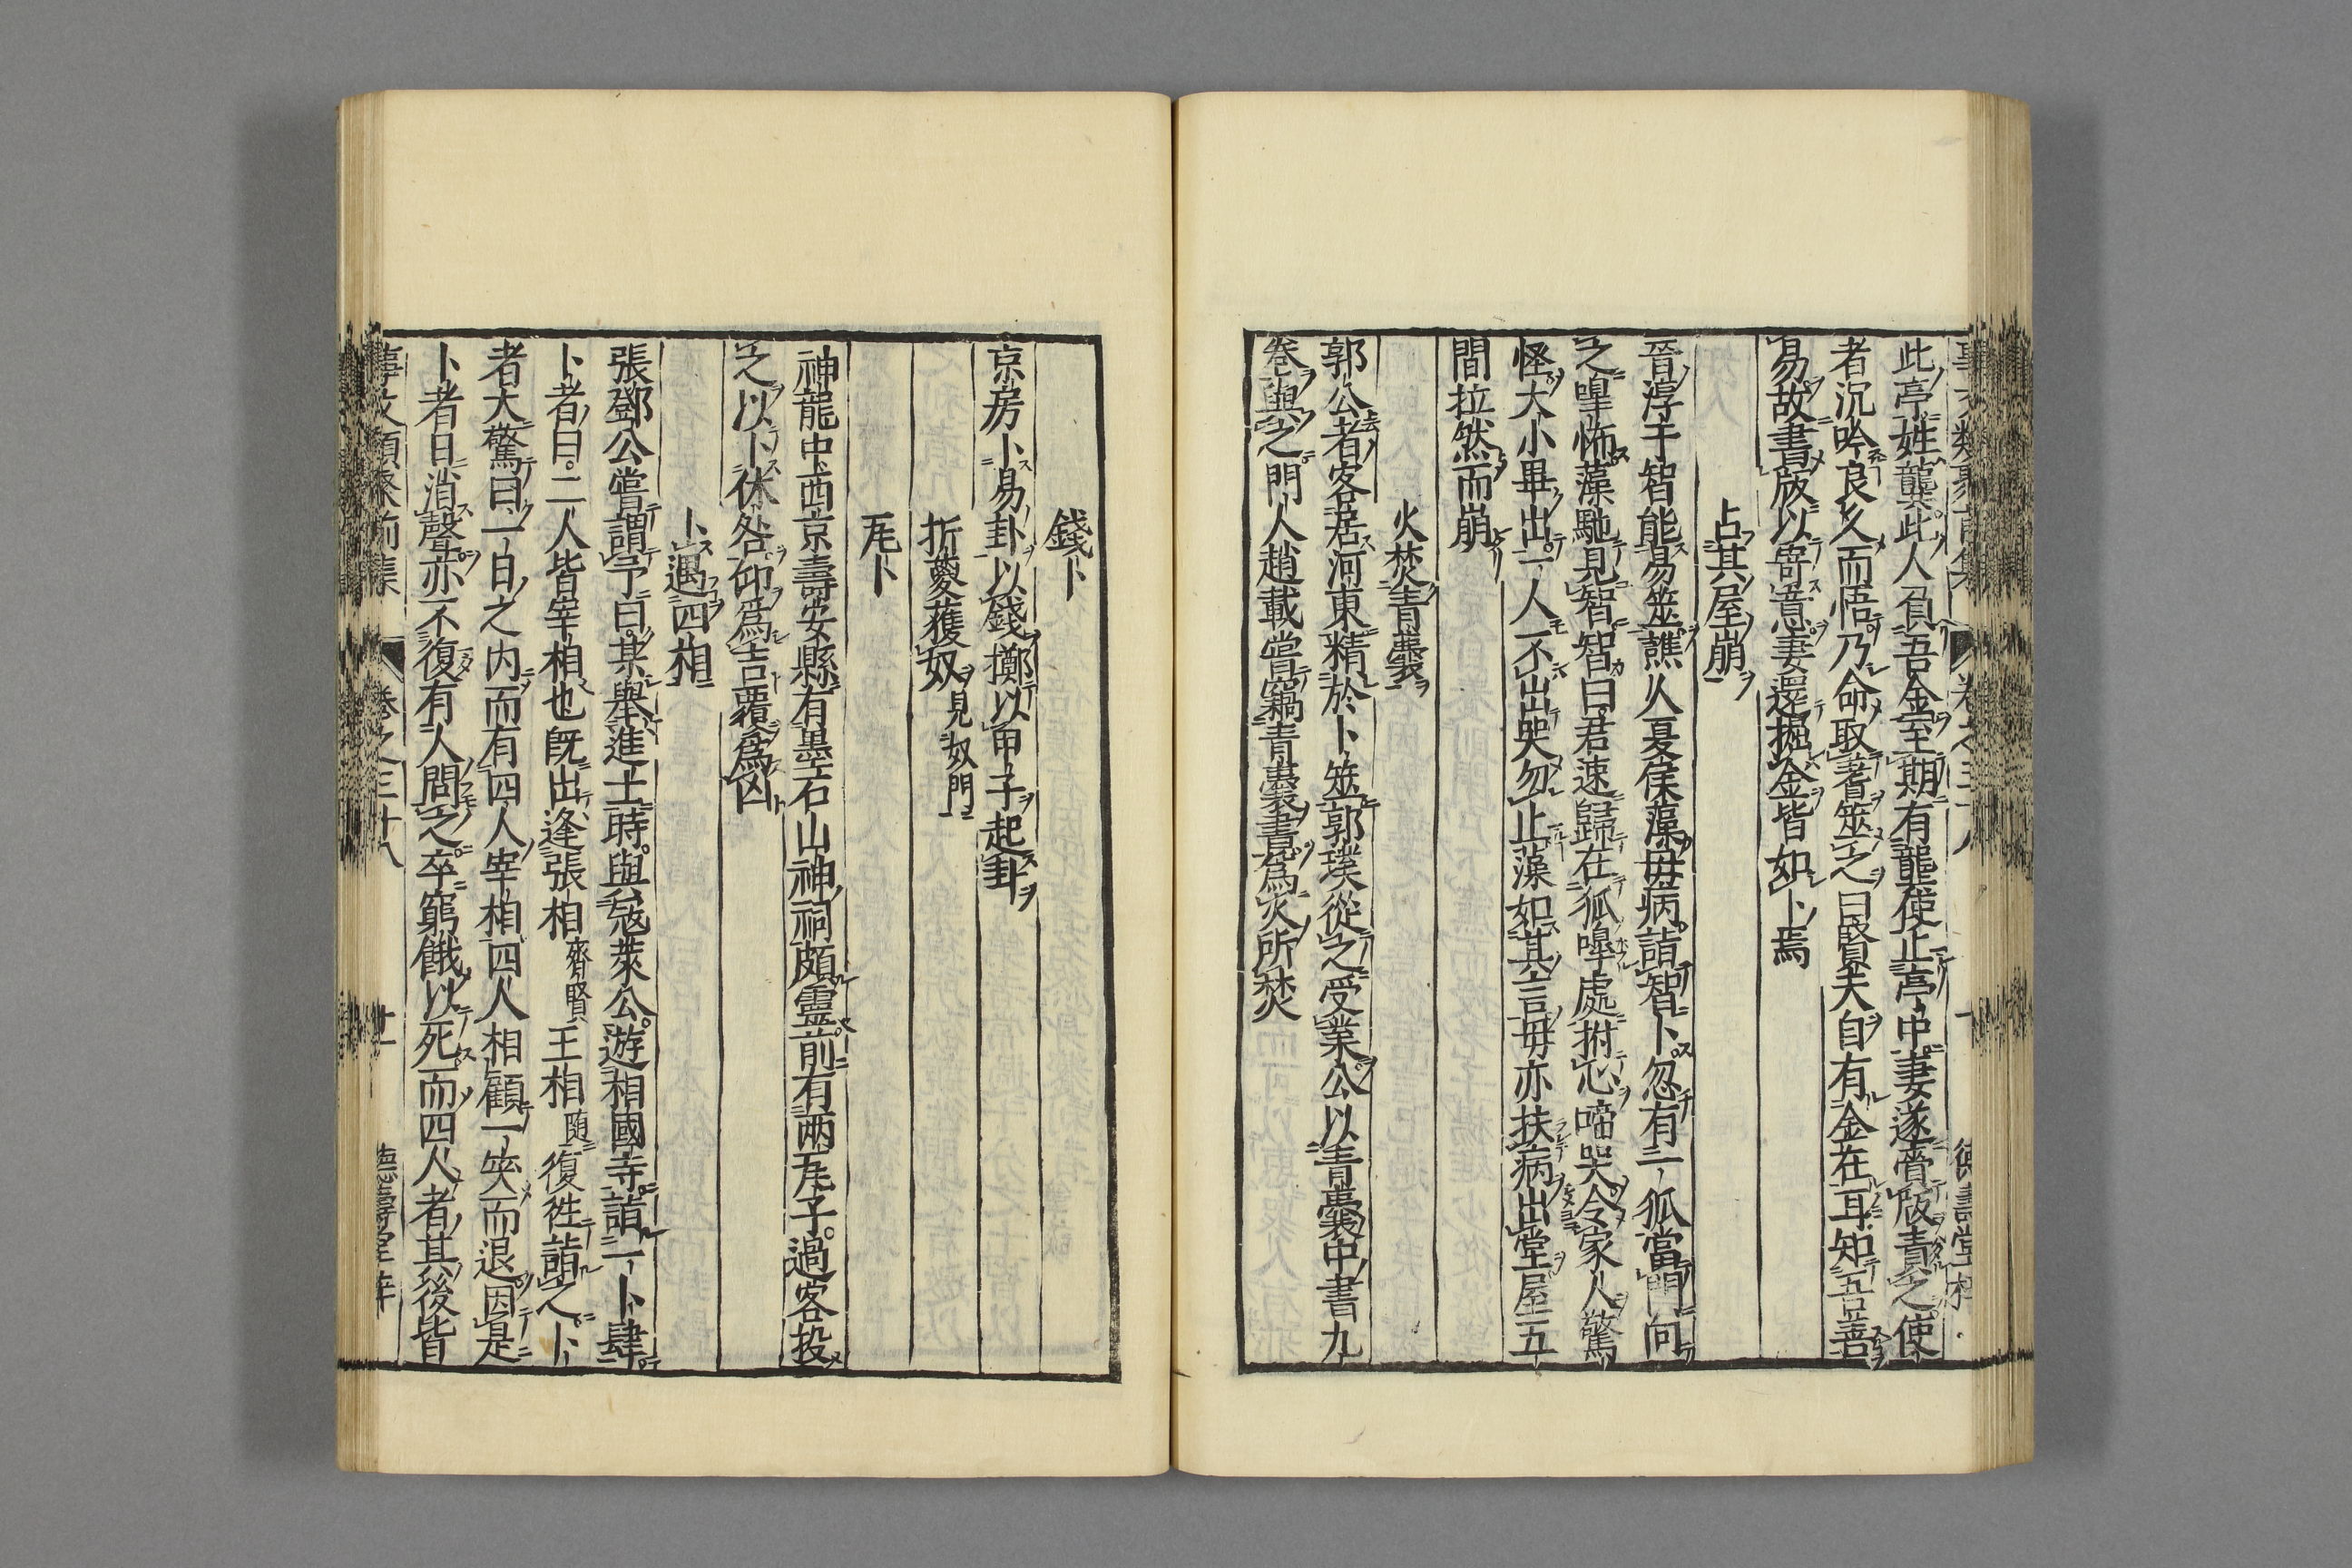 此亭姓龔此人負吾金至期有龔使止亭中妻遂齎版責之使
者沉吟良久而悟乃命取蓍筮之曰賢夫自有金在耳知吾善
易故書版以寄意妻還掘金皆如卜焉
占其屋崩
晉淳于智能易筮譙人夏侯藻母病詣智卜忽有一狐當門向
之嘷怖藻馳見智智曰君速歸在狐嘷處拊心啼哭令家人驚
怪大小畢出一人不出哭勿止藻如其言母亦扶病出堂屋五
間拉然而崩
火焚青囊
郭公者客居河東精於卜筮郭璞從之受業公以青囊中書九
卷與之門人趙載嘗竊青囊書爲火所焚
錢卜
京房卜易卦以錢擲以甲子起卦
折薆獲奴見奴門
瓦卜
神龍中西京壽安縣有墨石山神祠頗靈前有兩瓦子過客投
之以卜休咎仰爲吉覆爲凶
卜遇四相
張鄧公嘗謂予曰某舉進士時與寇萊公遊相國寺詣一卜肆
卜者曰二人皆宰相也既出逢張相齊賢王相随復徃詣之卜
者大驚曰一日之内而有四人宰相四人相顧一笑而退因是
卜者日消聲亦不復有人問之卒窮餓以死而四人者其後皆
事文類聚前集 卷之三十八 十一 德壽堂梓